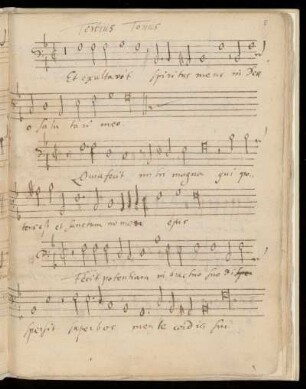 Tertius Tonus
Et exultavit spiritus meus in Deo
salutari meo.
Quia fecit mihi magna qui po,
tens est et sanctum nomen ejus
Fecit potentiam in brachio suo dis
persit superbos mente cordis sui